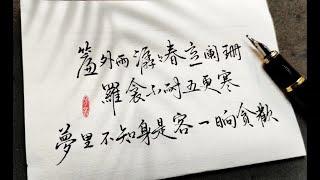 簾外雨潺々春意阑珊
羅衾不耐五更寒
夢里不知身是客一晌貪歡